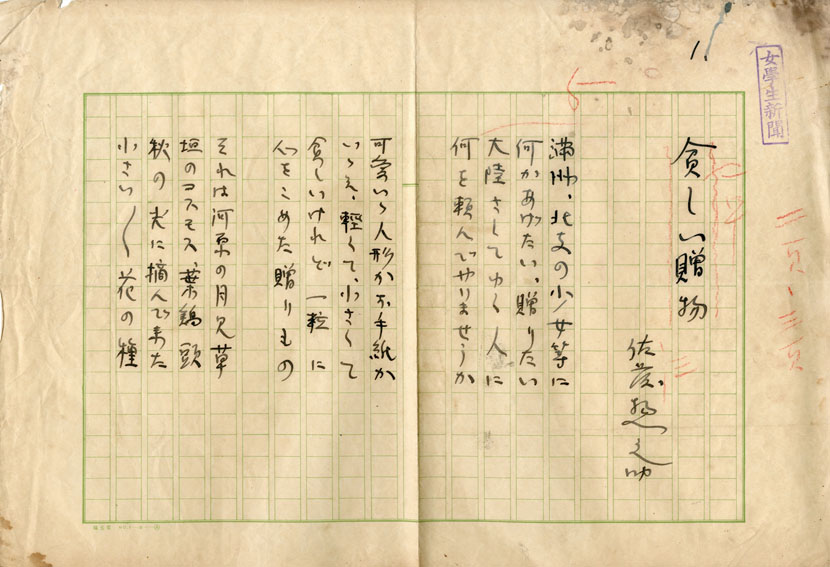 女學生新聞
1.
貧しい贈物
佐藤惣之助
満洲、北支の小少女等に
何かあげたい、贈りたい
大陸さしてゆく人に
何を頼んでやりませうか
可愛いゝ人形かお手紙か
いゝえ、軽くて、小さくて
貧しいけれど一粒に
心をこめた贈りもの
それは河原の月見草
垣のコスモス葉鶏頭
秋の 末に摘んで来た
小さい〳〵花の種